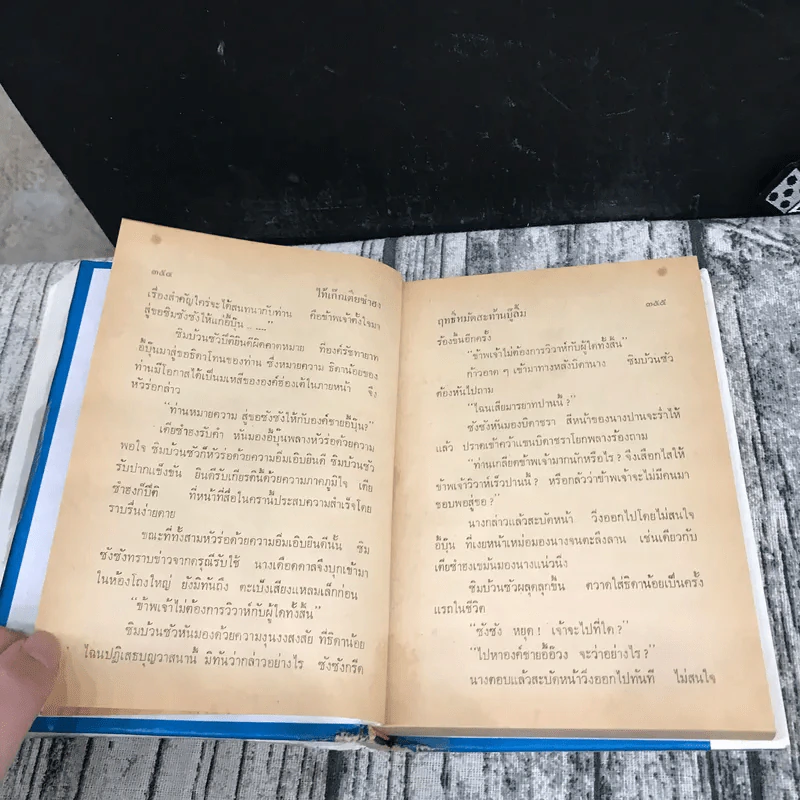 ๓๕๔
ไท้เก็กเตียซำฮง
เรื่องสำคัญใคร่จะได้สนทนากับท่าน คือข้าพเจ้าตั้งใจมา
สู่ขอซิมซังซังให้แก่อี้บุ้น ....."
ซิมบ้วนซัวบีดียินดีผิดคาดหมาย ที่องค์รัชทายาท
อี้บุ้นมาสู่ขอธิดาโทนของท่าน ซึ่งหมายความ ธิดาน้อยของ
ท่านมีโอกาสได้เป็นมเหสีขององค์ฮ่องเต้ในภายหน้า จึง
หัวร่อกล่าว
"ท่านหมายความ สู่ขอซังซังให้กับองค์ชายอี้บุ้น?"
เตียซำฮงรับคำ หันมองอี้บุ้นพลางหัวร่อด้วยความ
พอใจ ซิมบ้วนซัวก็หัวร่อด้วยความอิ่มเอิบยินดี ซิมบ้วนซัว
รับปากแข็งขัน ยินดีรับเกียรตินี้ด้วยความภาคภูมิใจ เตีย
ซำฮงก็ปีติ ที่หน้าที่สื่อในครานี้ประสบความสำเร็จโดย
ราบรื่นง่ายดาย
ขณะที่ทั้งสามหัวร่อด้วยความอิ่มเอิบยินดีนั้น ซิม
ซังซังทราบข่าวจากดรุณีรับใช้ นางเดือดดาลจึงบุกเข้ามา
ในห้องโถงใหญ่ ยังมิทันถึง ตะเบ็งเสียงแหลมเล็กก่อน
"ข้าพเจ้าไม่ต้องการวิวาห์กับผู้ใดทั้งสิ้น"
ซิมบ้วนซัวหันมองด้วยความงุนงงสงสัย ที่ธิดาน้อย
ไฉนปฏิเสธบุญวาสนานี้ มิทันว่ากล่าวอย่างไร ซังซังกรีด
ฤทธิ์หมัดสะท้านบู๊ลิ้ม
๓๕๕
ร้องขึ้นอีกครั้ง
"ข้าพเจ้าไม่ต้องการวิวาห์กับผู้ใดทั้งสิ้น"
ก้าวอาด ๆ เข้ามาทางหลังบิดานาง ซิมบ้วนซัว
ต้องหันไปถาม
"ไฉนเสียมารยาทปานนี้?"
ซังซังหันมองบิดาชรา สีหน้าของนางปานจะร่ำไห้
แล้ว ปราดเข้าคว้าแขนบิดาชราโยกพลางร้องถาม
"ท่านเกลียดข้าพเจ้ามากนักหรือไร? จึงเลือกไสให้
ข้าพเจ้าวิวาห์เร็วปานนี้? หรือกลัวว่าข้าพเจ้าจะไม่มีคนมา
ชอบพอสู่ขอ?"
นางกล่าวแล้วสะบัดหน้า วิ่งออกไปโดยไม่สนใจ
อี้บุ้น ที่เงยหน้าเหม่อมองนางจนตะลึงลาน เช่นเดียวกับ
เตียซำฮงเขม้นมองนางแน่วนิ่ง
ซิมบ้วนซัวผลุดลุกขึ้น ตวาดใส่ธิดาน้อยเป็นครั้ง
แรกในชีวิต
"ซังซัง หยุด! เจ้าจะไปที่ใด?"
"ไปหาองค์ชายอี้อ๊วง จะว่าอย่างไร?"
นางตอบแล้วสะบัดหน้าวิ่งออกไปทันที ไม่สนใจ